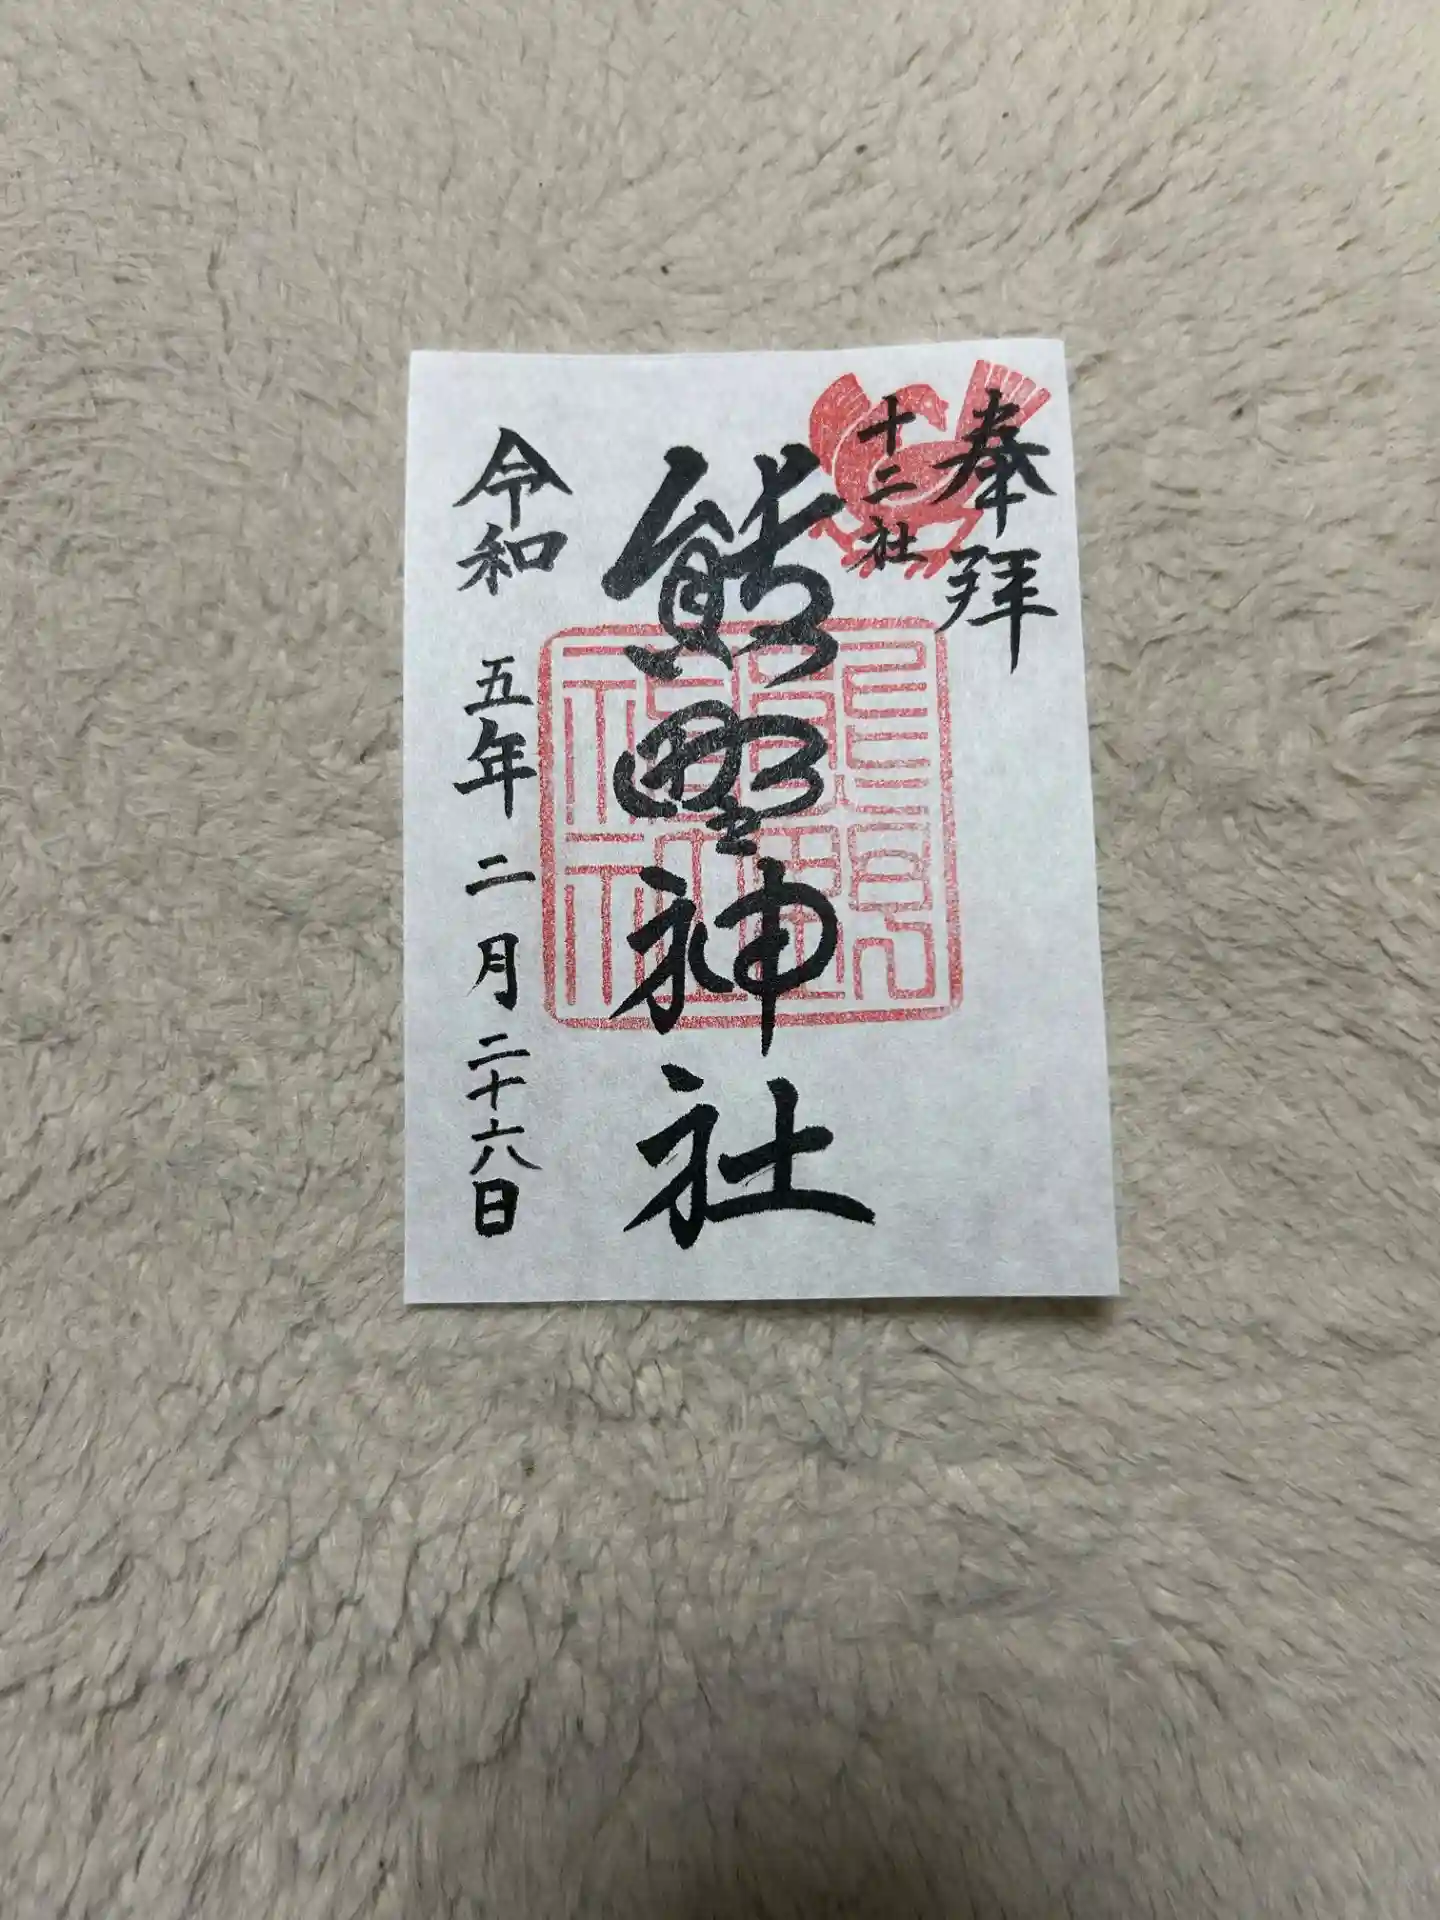 奉拝
十二社
熊野神社
令和五年二月二十六日